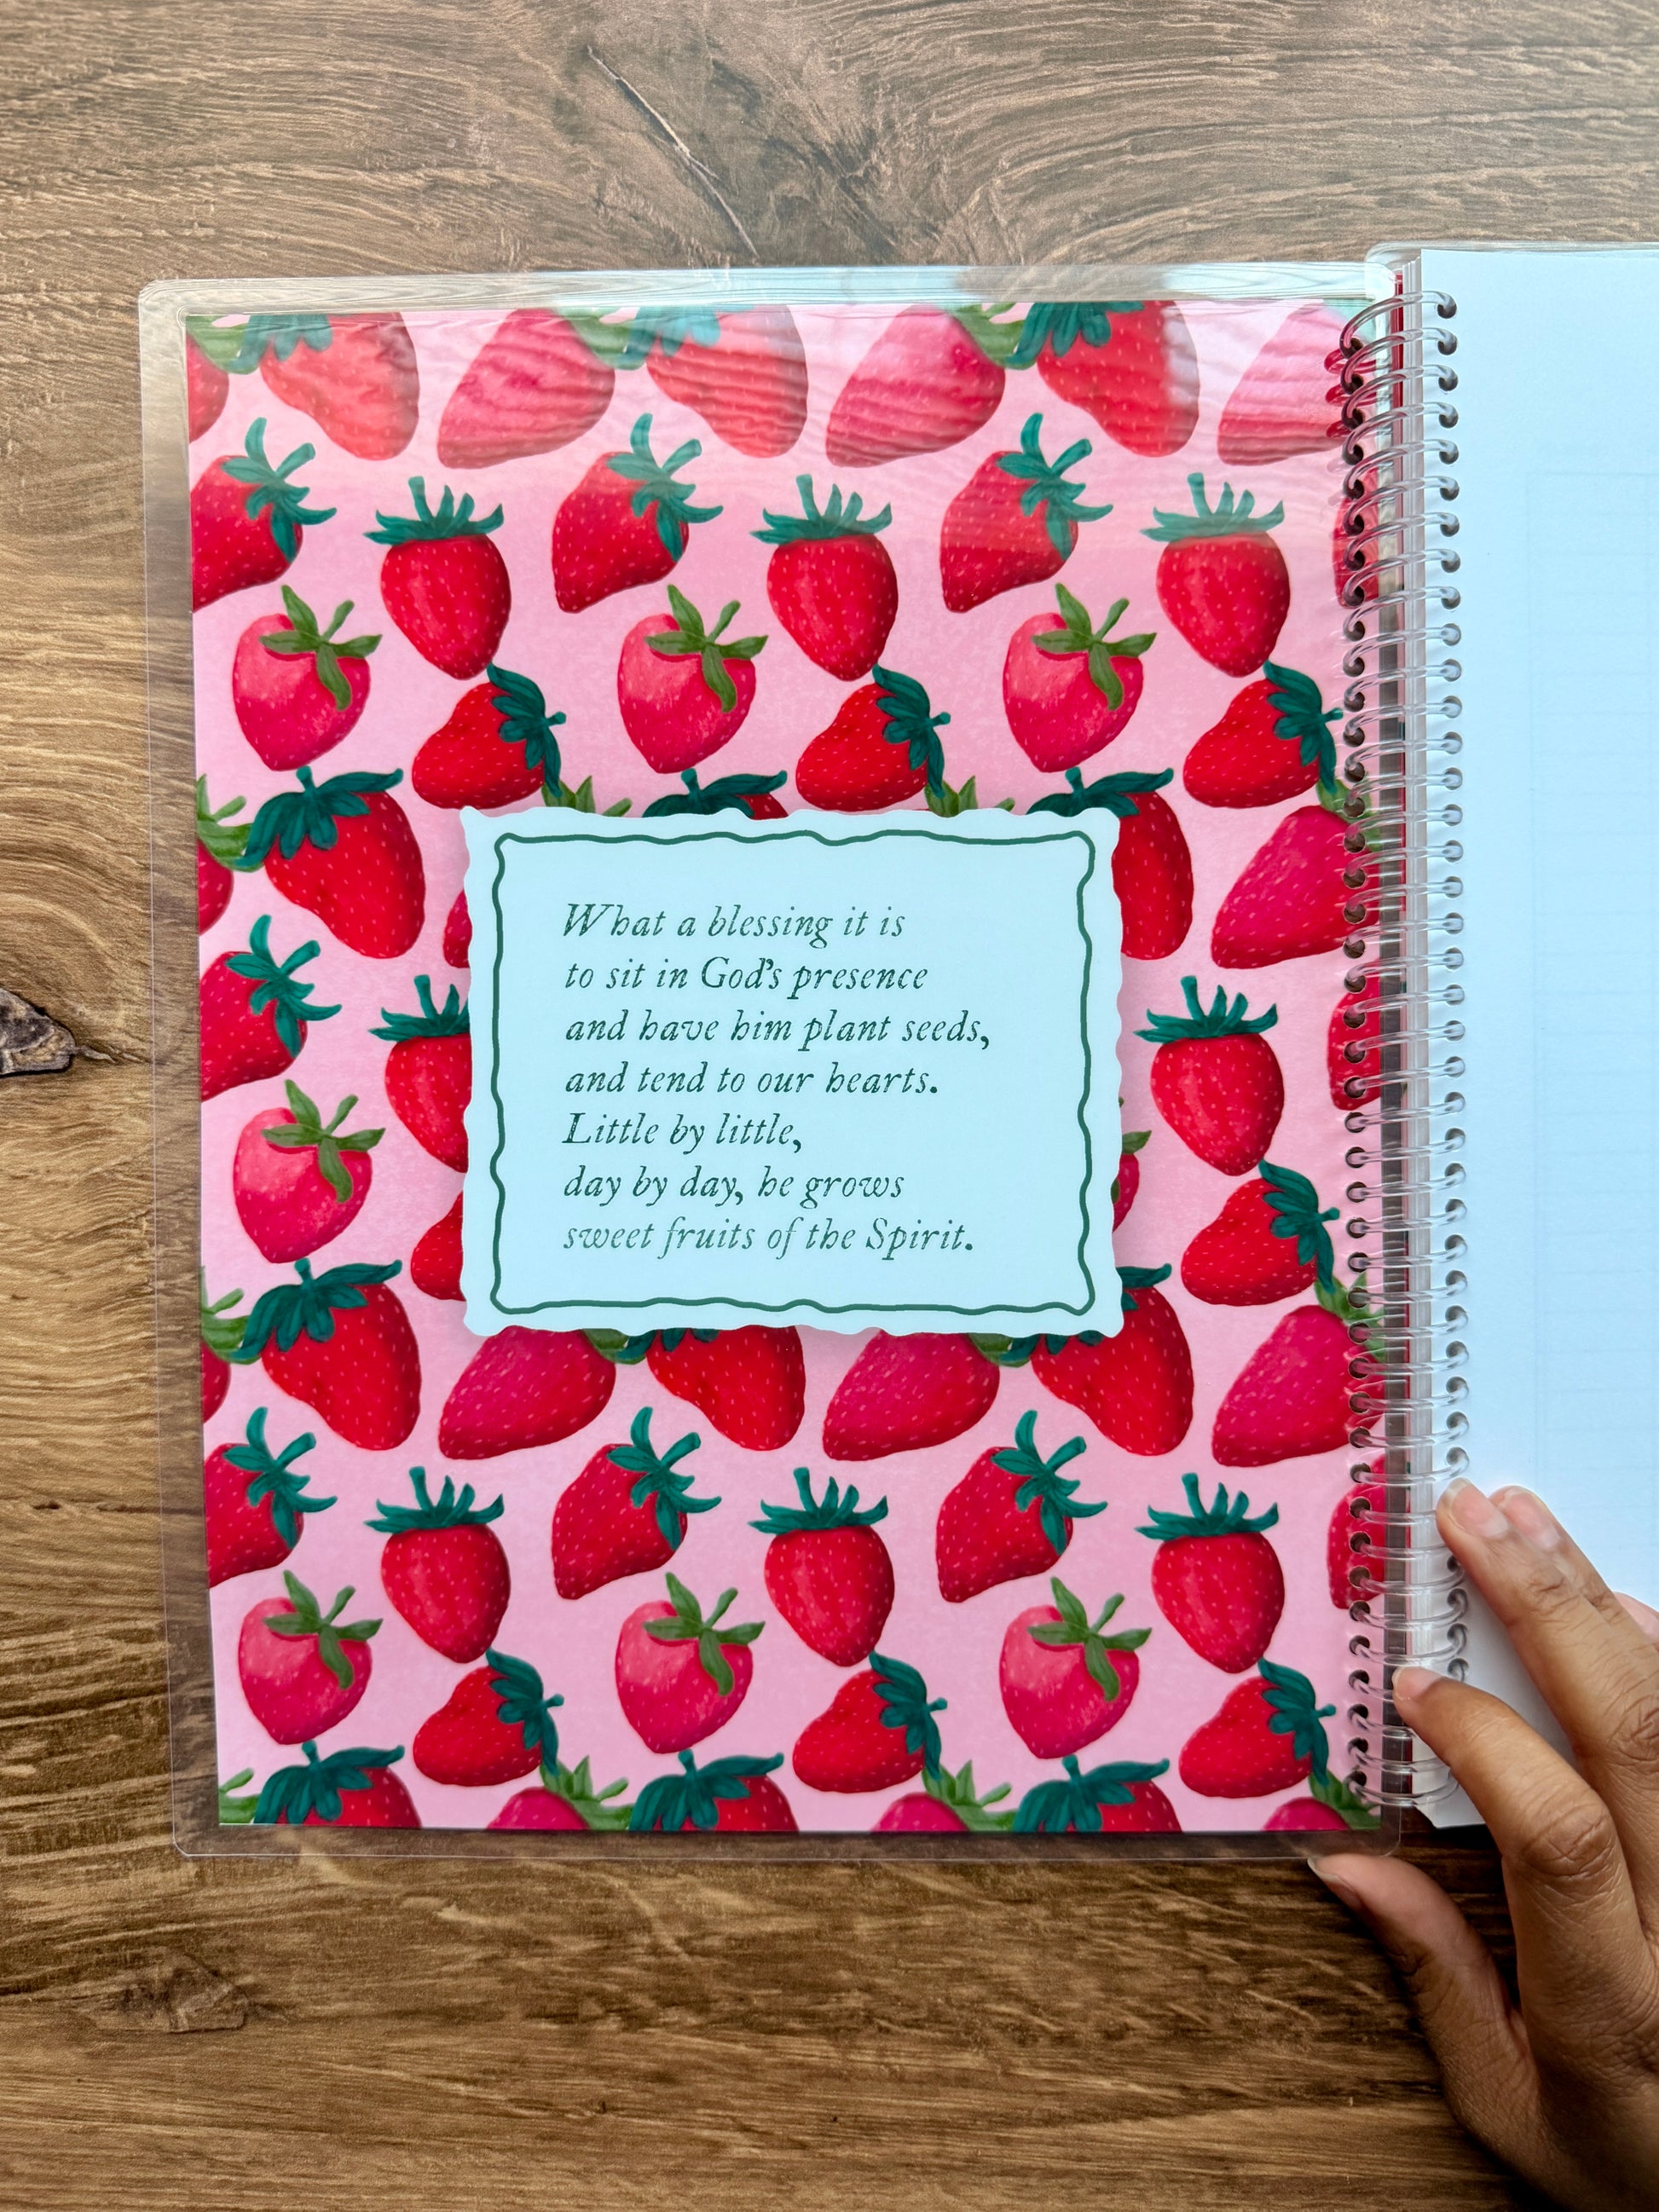 What a blessing it is
to sit in God's presence
and have him plant seeds,
and tend to our hearts.
Little by little,
day by day, he grows
sweet fruits of the Spirit.